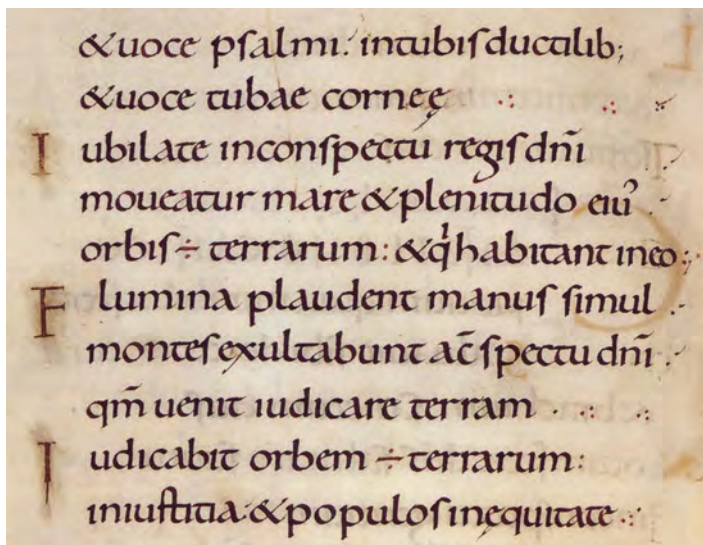 &uoce pſalmi. intubiſductilib;
&uoce tubae corneę
Iubilate inconſpectū regiſdn̄i
moueatur mare &plenitudo eiuꝰ
orbiſ÷ terrarum: &qͥ habitant ineo
Flumina plaudent manuſ ſimul
monteſexultabunt ac̄ ſpectu dn̄i
qm̄ uenit iudicare terram
Iudicabit orbem ÷terrarum:
iniuſtitia &populoſinęquitate